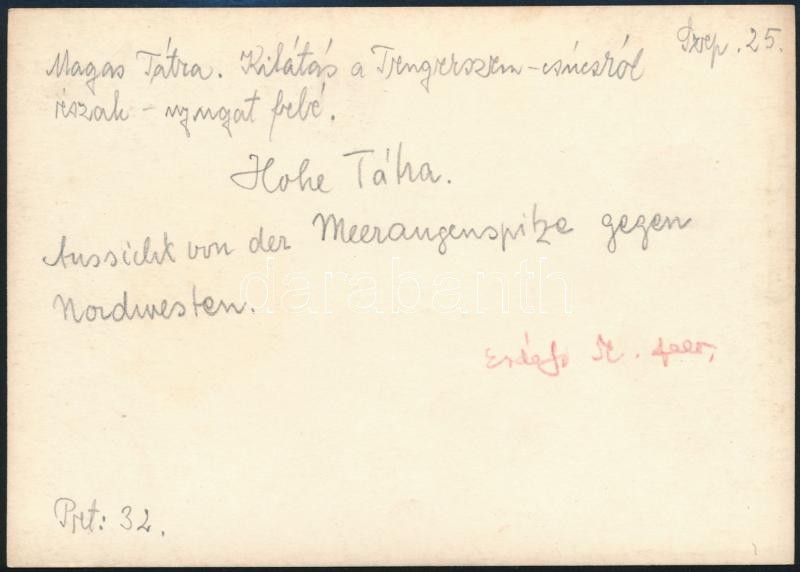 Szep. 25.
Magas Tátra. Kilátás a Tengerszem-csúcsról
észak-nyugat felé.
Hohe Tátra.
Aussicht von der Meeraugenspitze gegen
Nordwesten.
darabanth
M.
Prt: 32.